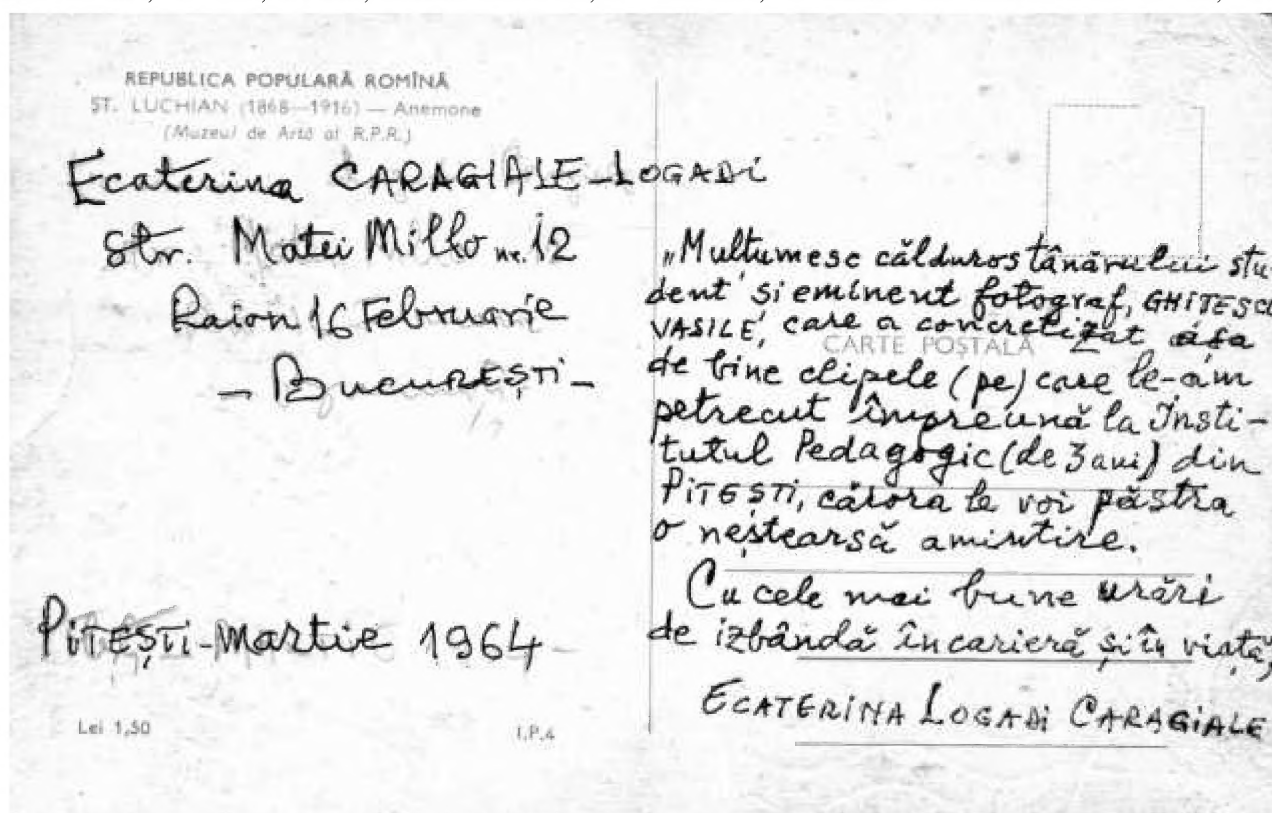 REPUBLICA POPULARĂ ROMÎNĂ
ȘT. LUCHIAN (1868—1916) — Anemone
(Muzeul de Artă al R.P.R.)
Ecaterina CARAGIALE-LOGADI
Str. Matei Millo nr. 12
Raion 16 Februarie
- BUCUREȘTI -
PITEȘTI-Martie 1964
Lei 1,50
I.P.4
„Multumesc călduros tânărului stu-
dent și eminent fotograf, GHITESCU
VASILE, care a concretizat așa
CARTE POȘTALĂ
de bine clipele (pe) care le-am
petrecut împreună la Insti-
tutul Pedagogic (de 3 ani) din
PITEȘTI, cărora le voi păstra
o neștearsă amintire.
Cu cele mai bune urări
de izbândă în carieră și în viață,
ECATERINA LOGADI CARAGIALE